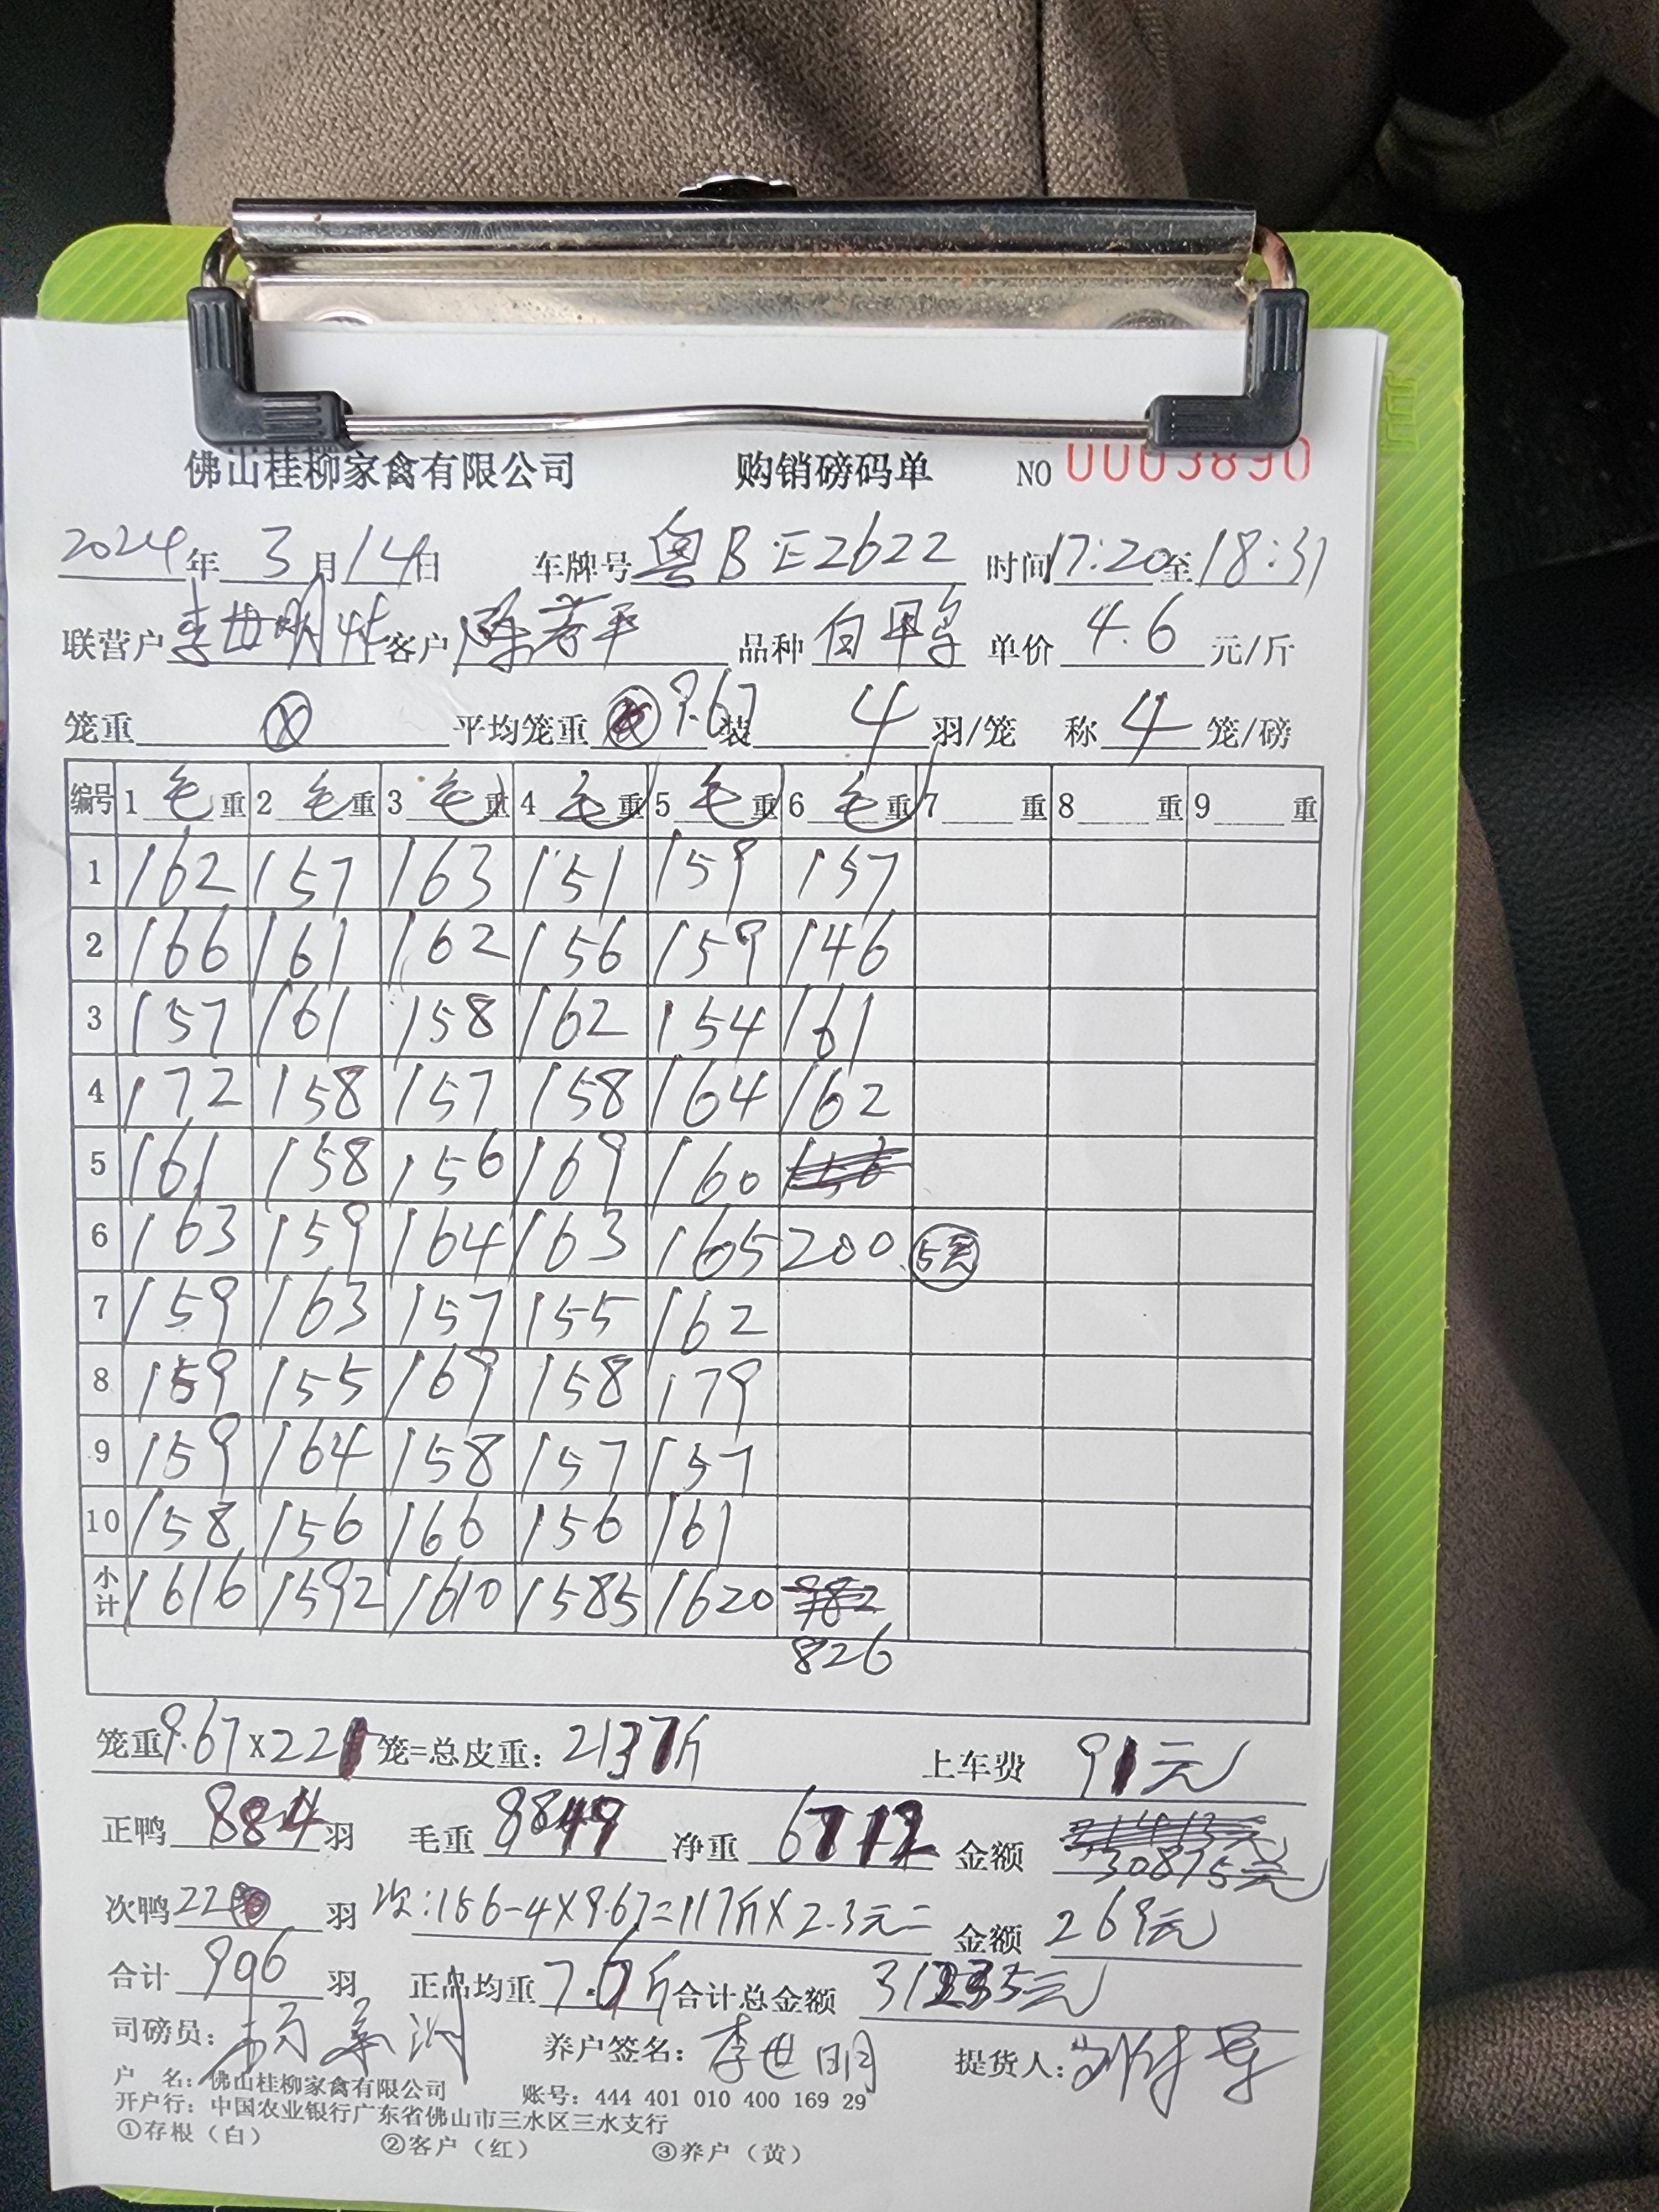 佛山桂柳家禽有限公司 购销磅码单 NO 0003890
2024年 3月14日 车牌号 粤B·E2622 时间17:20至18:31
联营户 李世明 客户 陈 平 品种 白鸭 单价 4.6 元/斤
笼重 平均笼重 9.67 装 4 羽/笼 称 4 笼/磅
编号 1 毛 重 2 毛 重 3 毛 重 4 毛 重 5 毛 重 6 毛 重 7 重 8 重 9 重
1 162 157 163 151 159 157
2 166 161 162 156 159 146
3 157 161 158 162 154 161
4 172 158 157 158 164 162
5 161 158 156 169 160
6 163 159 164 163 165 200 5笼
7 159 163 157 155 162
8 159 155 169 158 179
9 159 164 158 157 157
10 158 156 166 156 161
小计 1616 1592 1610 1585 1620 982
826
笼重9.67×221笼=总皮重：2137斤 上车费 91元
正鸭 884 羽 毛重 8849 净重 6712 金额 30875元
次鸭 22 羽 次：156-4×9.67=117斤×2.3元= 金额 269元
合计 906 羽 正品均重 7.6斤 合计总金额 31235元
司磅员： 杨 养户签名： 李世明 提货人： 刘
户 名：佛山桂柳家禽有限公司 账号：444 401 010 400 169 29
开户行：中国农业银行广东省佛山市三水区三水支行
①存根（白） ②客户（红） ③养户（黄）